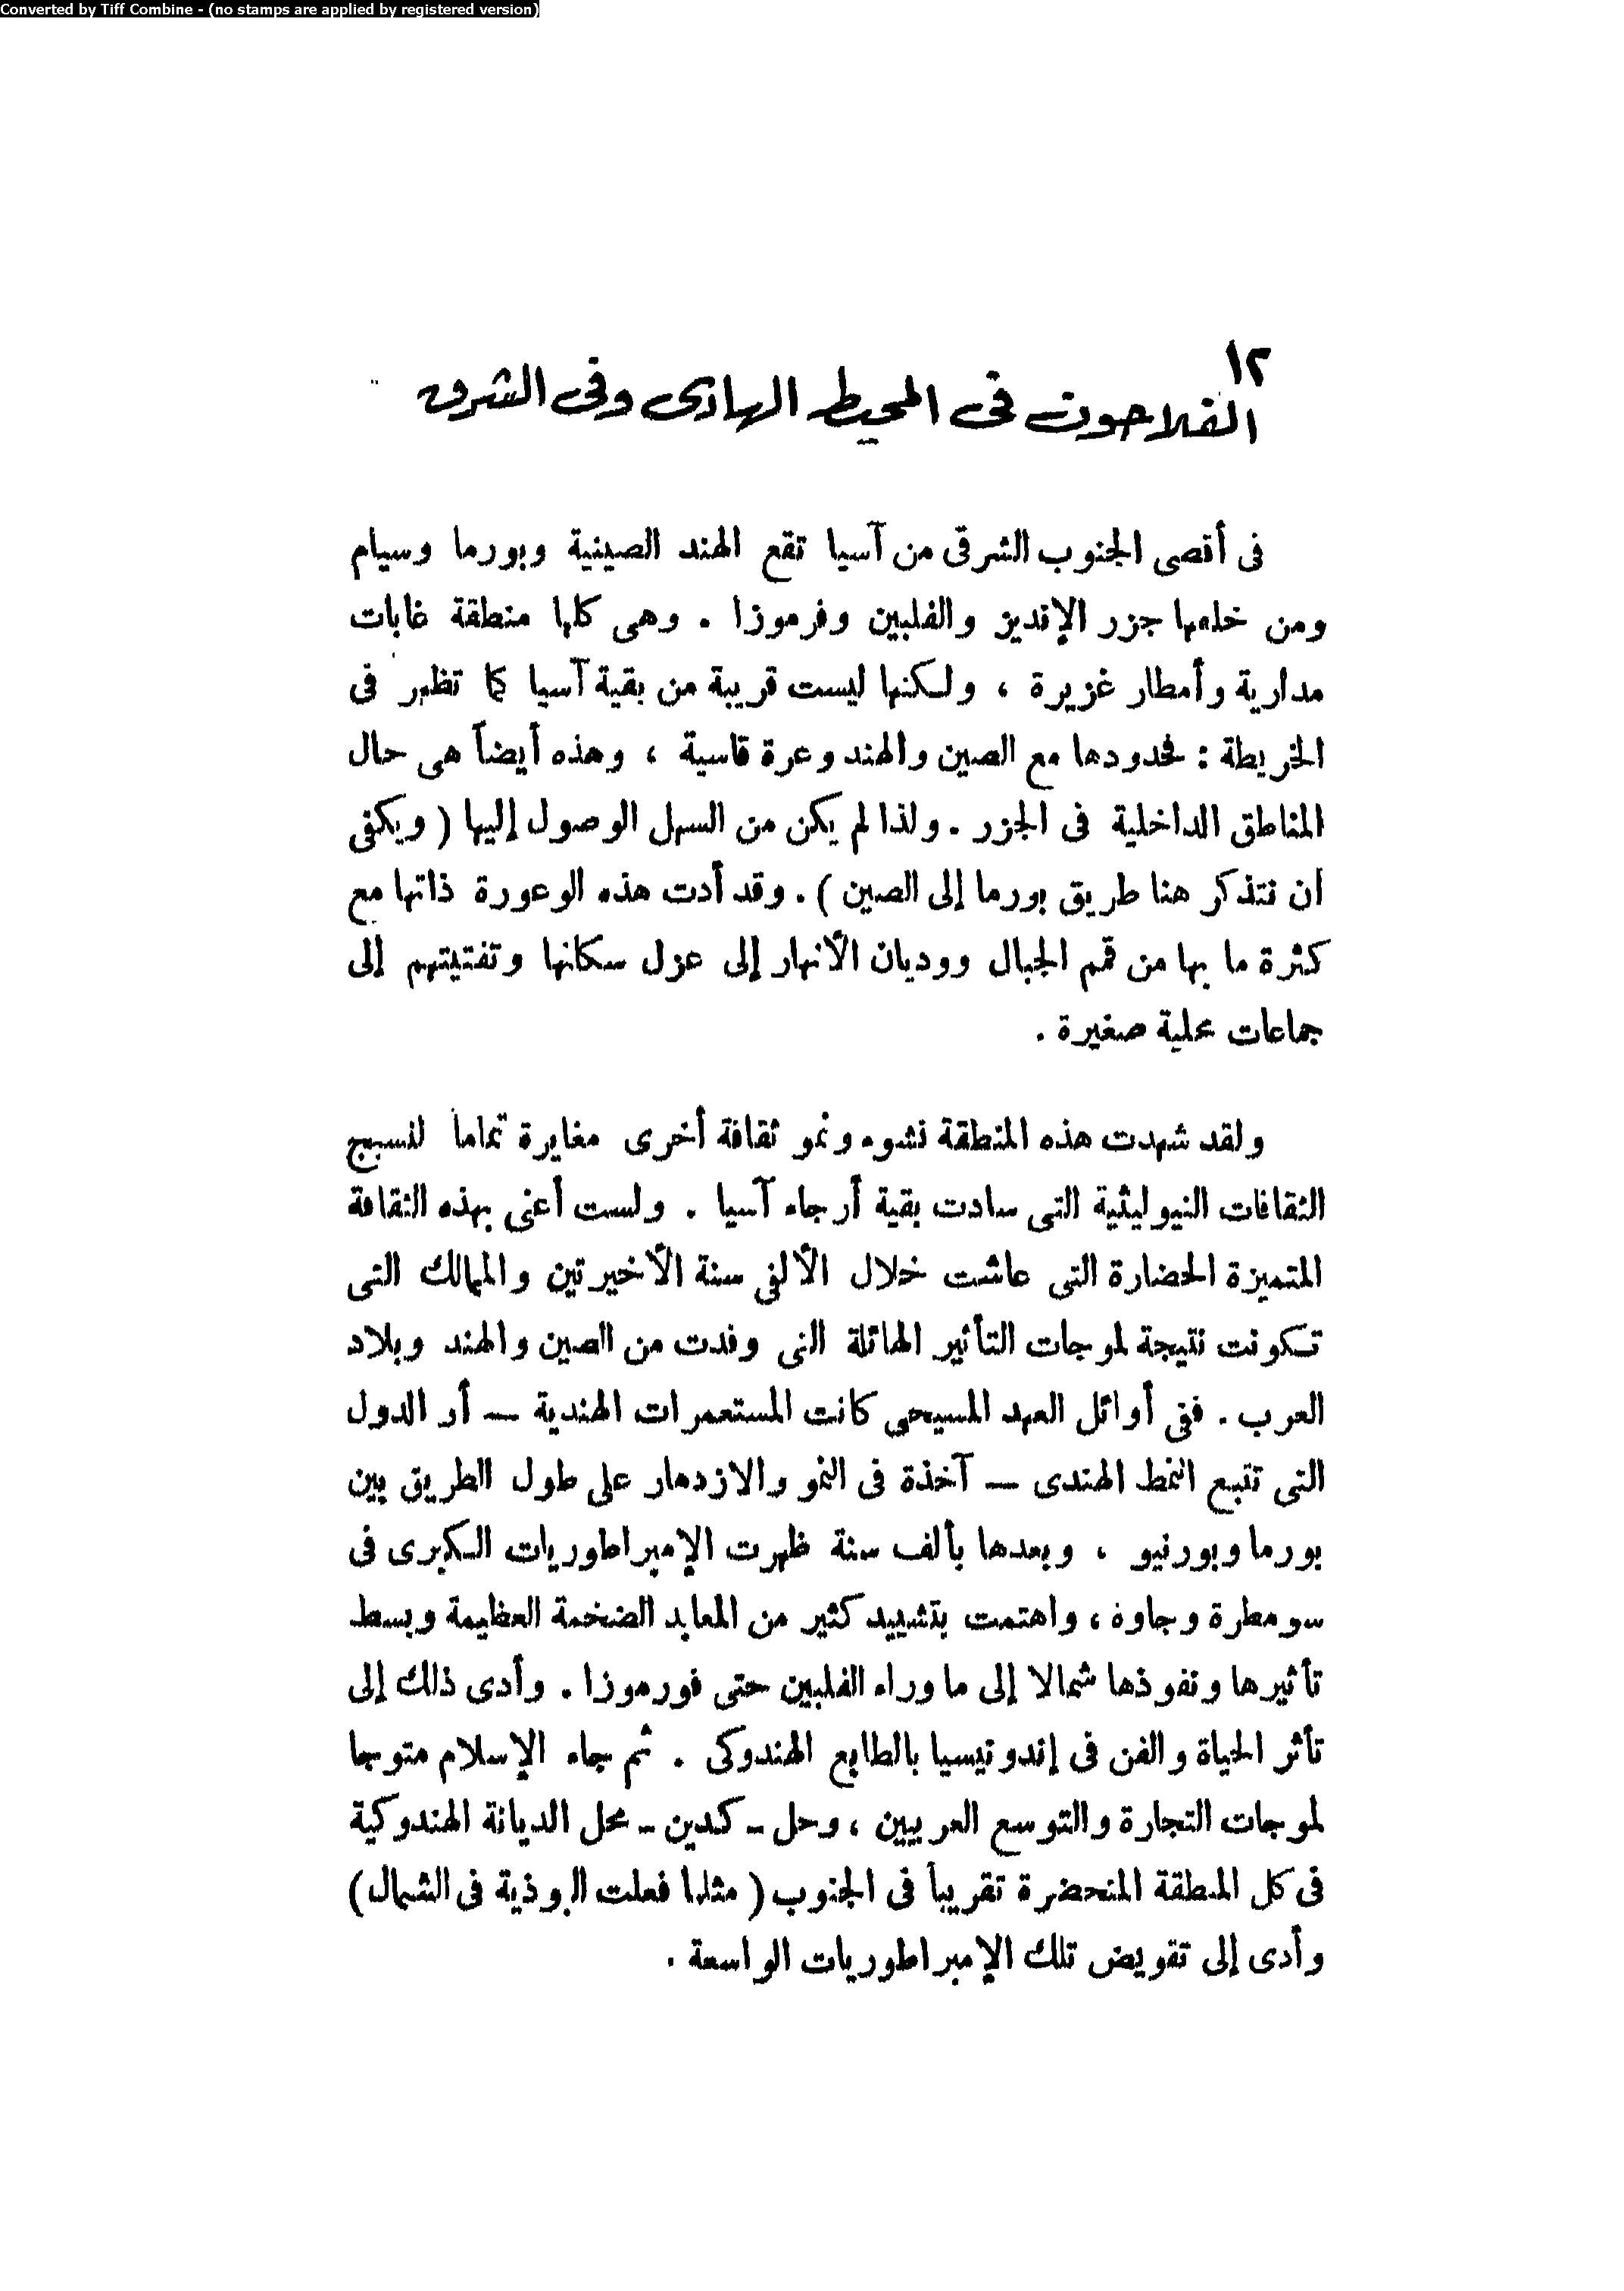 Converted by Tiff Combine - (no stamps are applied by registered version)
١٢
الفلاحون فى المحيط الهادى وفى الشرق
فى أقصى الجنوب الشرقى من آسيا تقع الهند الصينية وبورما وسيام
ومن خلفها جزر الإنديز والفلبين وفرموزا . وهى كلها منطقة غابات
مدارية وأمطار غزيرة ، ولكنها ليست قريبة من بقية آسيا كما تظهر فى
الخريطة : فحدودها مع الصين والهند وعرة قاسية ، وهذه أيضاً هى حال
المناطق الداخلية فى الجزر . ولذا لم يكن من السهل الوصول إليها ( ويكفى
أن نتذكر هنا طريق بورما إلى الصين ) . وقد أدت هذه الوعورة ذاتها مع
كثرة ما بها من قمم الجبال ووديان الأنهار إلى عزل سكانها وتفتيتهم إلى
جماعات محلية صغيرة .
ولقد شهدت هذه المنطقة نشوء ونمو ثقافة أخرى مغايرة تماما لنسيج
الثقافات النيوليثية التى سادت بقية أرجاء آسيا . ولست أعنى بهذه الثقافة
المتميزة الحضارة التى عاشت خلال الألفى سنة الأخيرتين والممالك التى
تكونت نتيجة لموجات التأثير الهائلة التى وفدت من الصين والهند وبلاد
العرب . ففى أوائل العهد المسيحى كانت المستعمرات الهندية — أو الدول
التى تتبع النمط الهندى — آخذة فى النمو والازدهار على طول الطريق بين
بورما وبورنيو ، وبعدها بألف سنة ظهرت الإمبراطوريات الكبرى فى
سومطرة وجاوه ، واهتمت بتشييد كثير من المعابد الضخمة العظيمة وبسط
تأثيرها ونفوذها شمالا إلى ما وراء الفلبين حتى فورموزا . وأدى ذلك إلى
تأثر الحياة والفن فى إندونيسيا بالطابع الهندوكى . ثم جاء الإسلام متوجا
لموجات التجارة والتوسع العربيين ، وحل - كدين - محل الديانة الهندوكية
فى كل المنطقة المتحضرة تقريباً فى الجنوب ( مثلما فعلت البوذية فى الشمال )
وأدى إلى تقويض تلك الإمبراطوريات الواسعة .